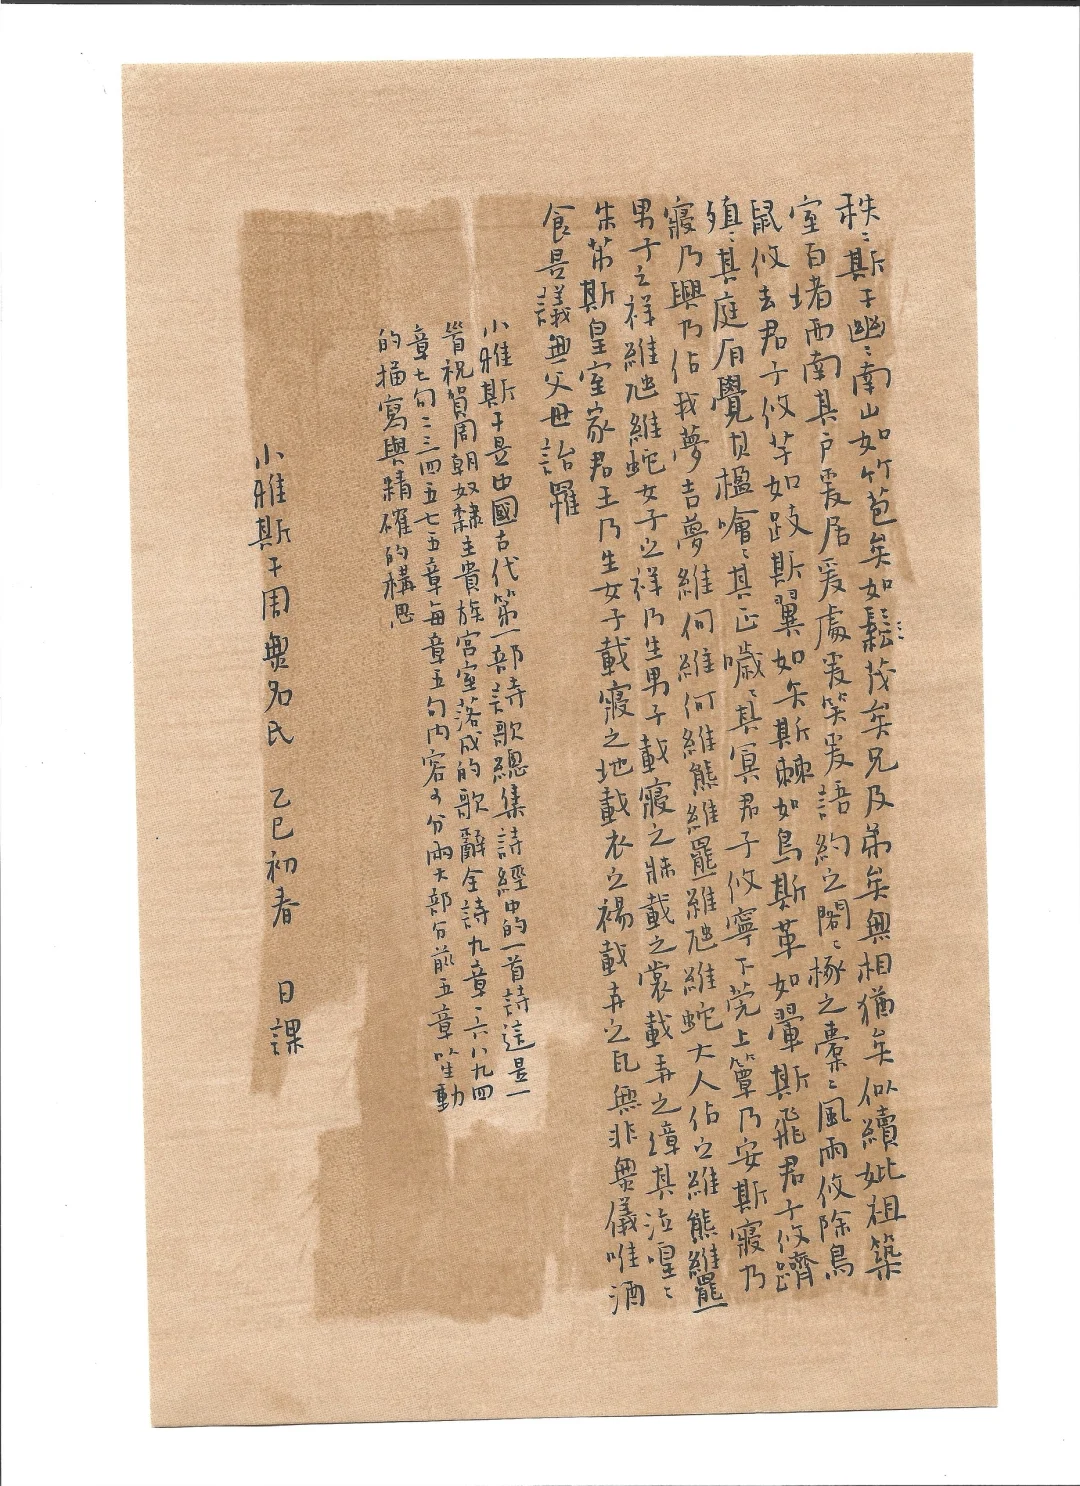 秩〻斯干幽〻南山如竹苞矣如鬆茂矣兄及弟矣無相猶矣似續妣祖築
室百堵西南其戶爰居爰處爰笑爰語約之閣〻椓之橐〻風雨攸除鳥
鼠攸去君子攸芋如跂斯翼如矢斯棘如鳥斯革如翬斯飛君子攸躋
殖〻其庭有覺其楹噲〻其正噦〻其冥君子攸寧下莞上簟乃安斯寢乃
寢乃興乃佔我夢吉夢維何維何維熊維羆維虺維蛇大人佔之維熊維羆
男子之祥維虺維蛇女子之祥乃生男子載寢之牀載之裳載弄之璋其泣喤〻
朱芾斯皇室家君王乃生女子載寢之地載衣之裼載弄之瓦無非無儀唯酒
食是議無父母詒罹
小雅斯干是中國古代第一部詩歌總集詩經中的一首詩這是一
首祝賀周朝奴隸主貴族宮室落成的歌辭全詩九章一六八九四
章七句二三四五七五章每章五句內容可分兩大部分前五章以生動
的描寫與精確的構思
小雅斯干周無名氏 乙巳初春 日課